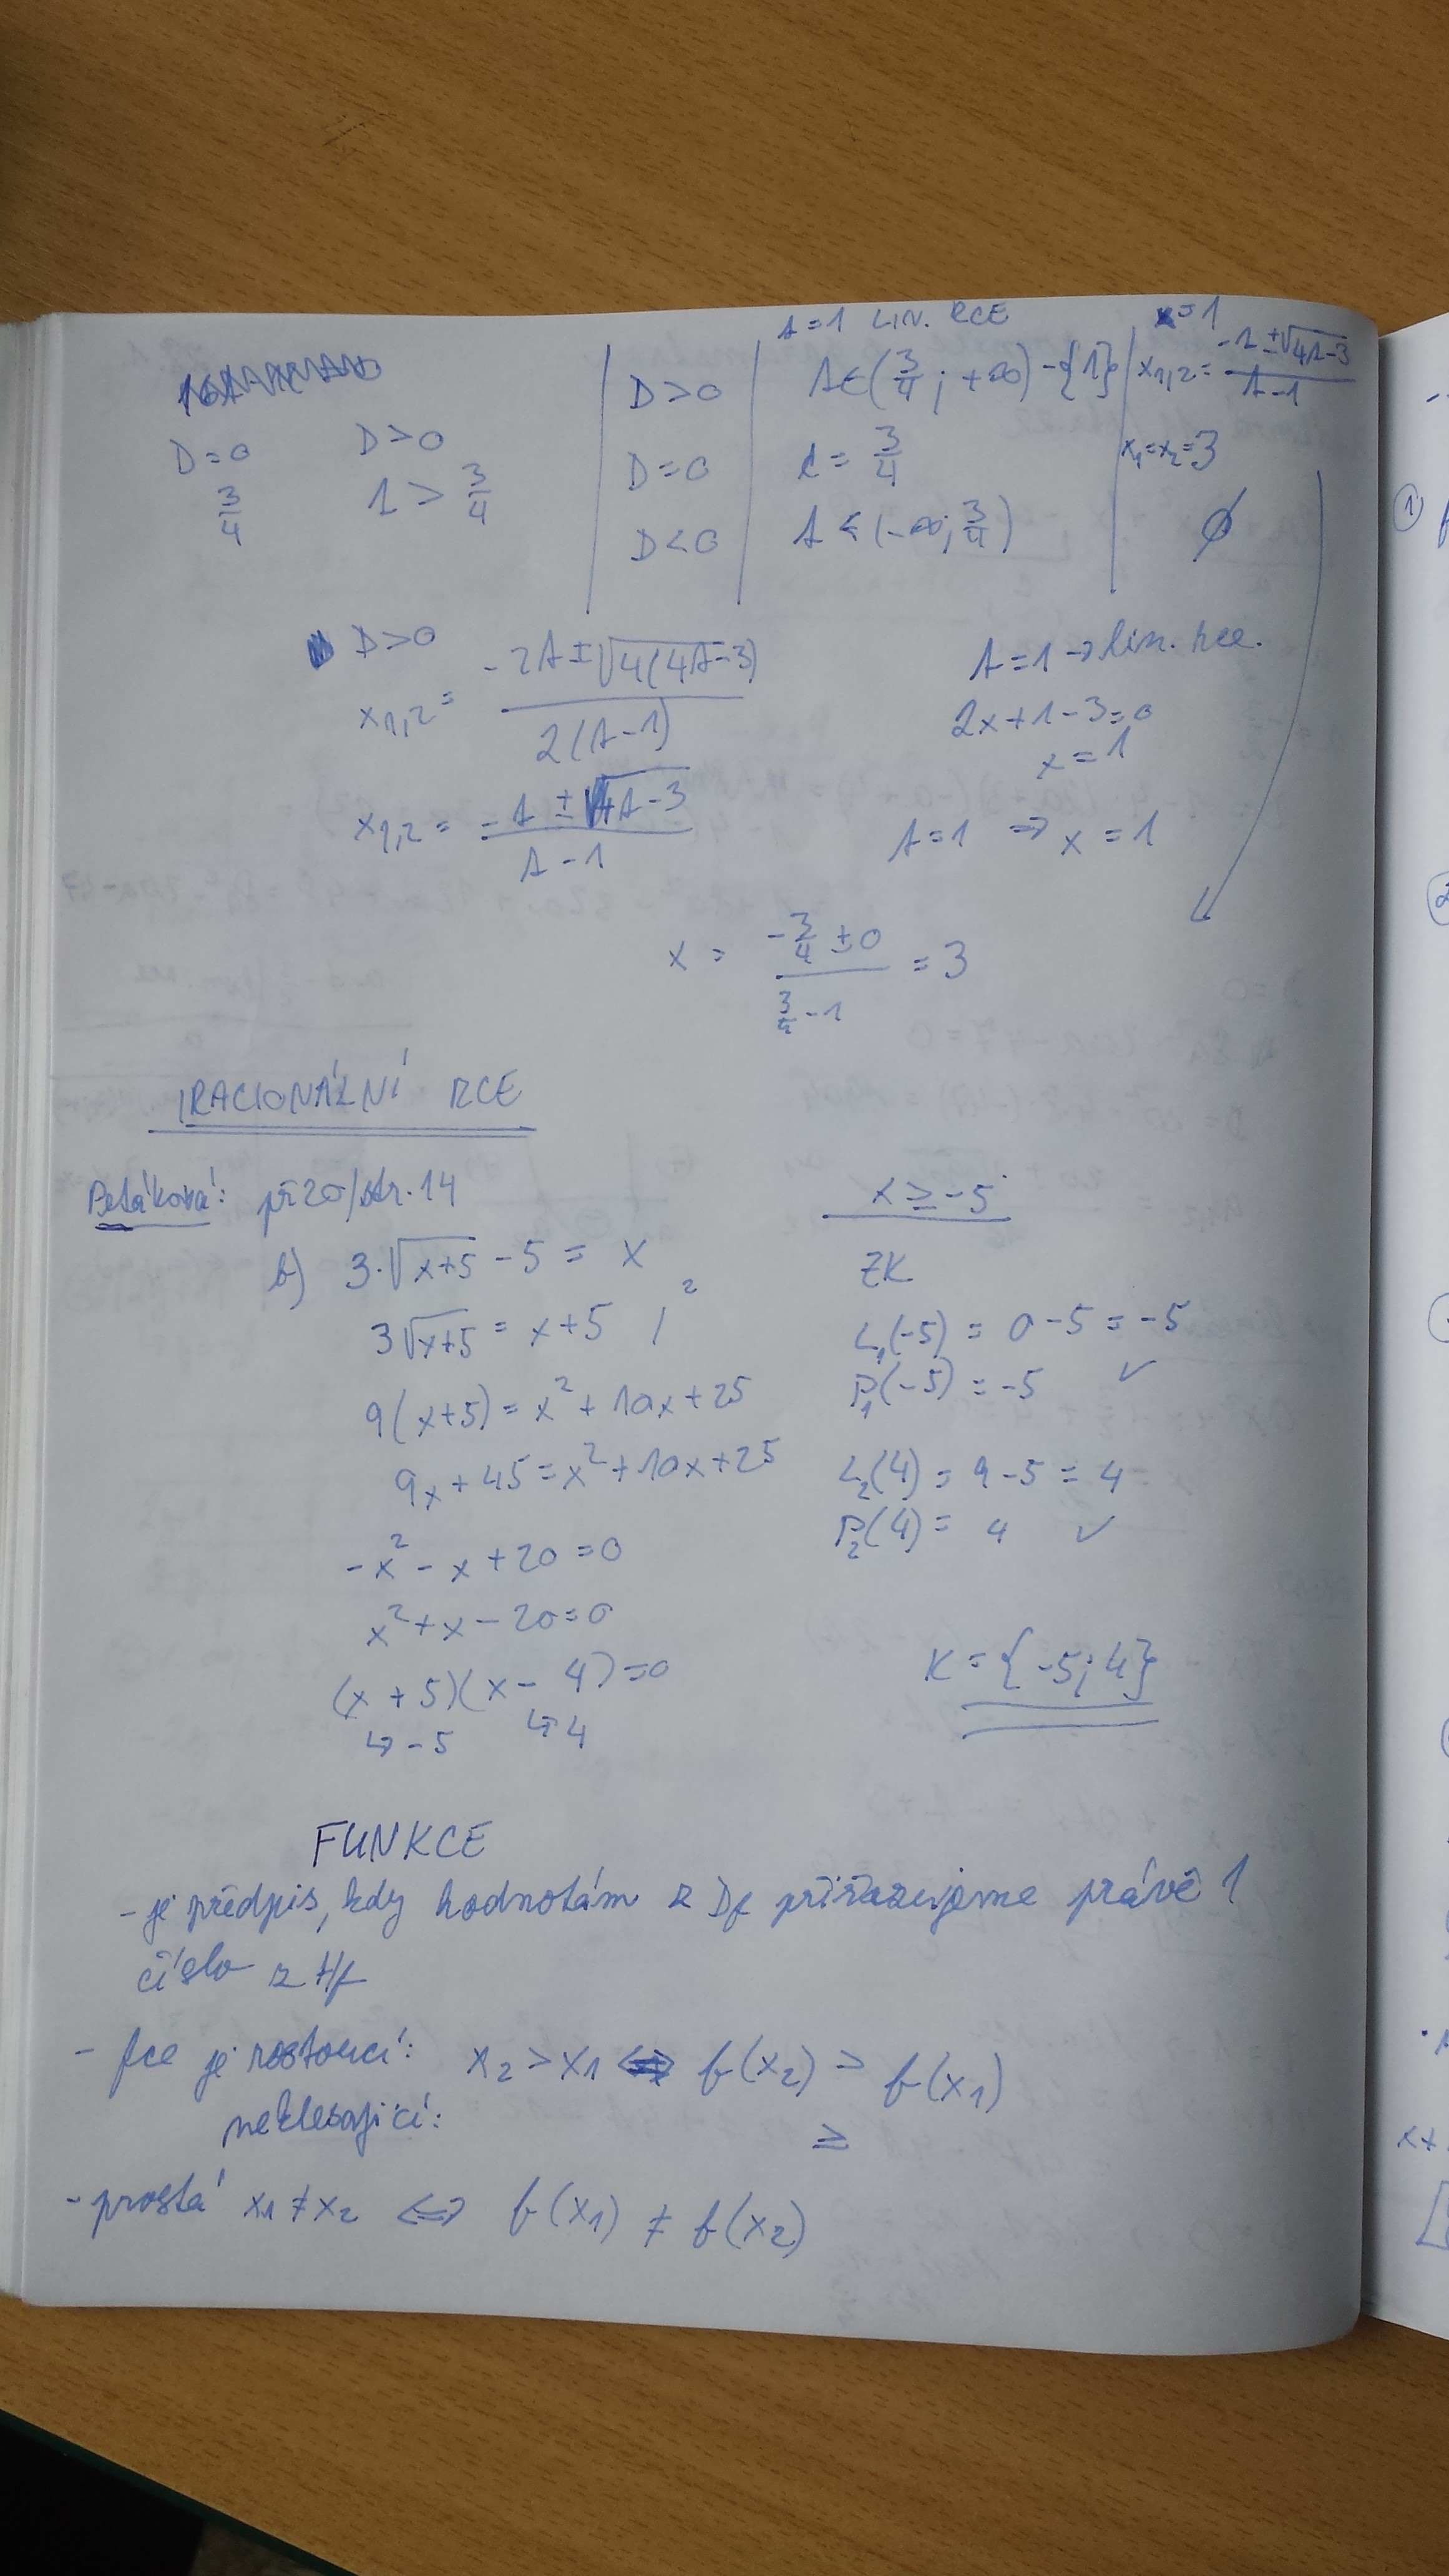 t=1 LIN. RCE x=1
D>0 t∈(3/4; +∞)-{1} x1,2= (-t±√4t-3)/(t-1)
D=0 D>0
3/4 1 > 3/4
D=0 t = 3/4 x1=x2=3
D<0 t ∈ (-∞; 3/4) ∅
D>0
x1,2 = (-2t±√4(4t-3))/(2(t-1))
t=1 → lin. rce.
2x+1-3=0
x=1
x1,2 = (-t ± √4t-3)/(t-1)
t=1 ⇒ x = 1
x = (-3/4 ± 0)/(3/4 -1) = 3
IRACIONÁLNÍ RCE
Petáková: př 20/str. 14
b) 3·√x+5 - 5 = x
3√x+5 = x+5 /²
9(x+5) = x²+10x+25
9x+45=x²+10x+25
-x²-x+20=0
x²+x-20=0
(x+5)(x-4)=0
↳ -5 ↳ 4
x ≥ -5
ZK
L₁(-5) = 0-5 = -5
P₁(-5) = -5 ✓
L₂(4) = 9-5 = 4
P₂(4) = 4 ✓
K={-5;4}
FUNKCE
- je předpis, kdy hodnotám z Df přiřazujeme právě 1
číslo z Hf
- fce je rostoucí: x₂>x₁ ⇔ f(x₂) > f(x₁)
neklesající: ≥
- prostá x₁≠x₂ ⇔ f(x₁) ≠ f(x₂)
1